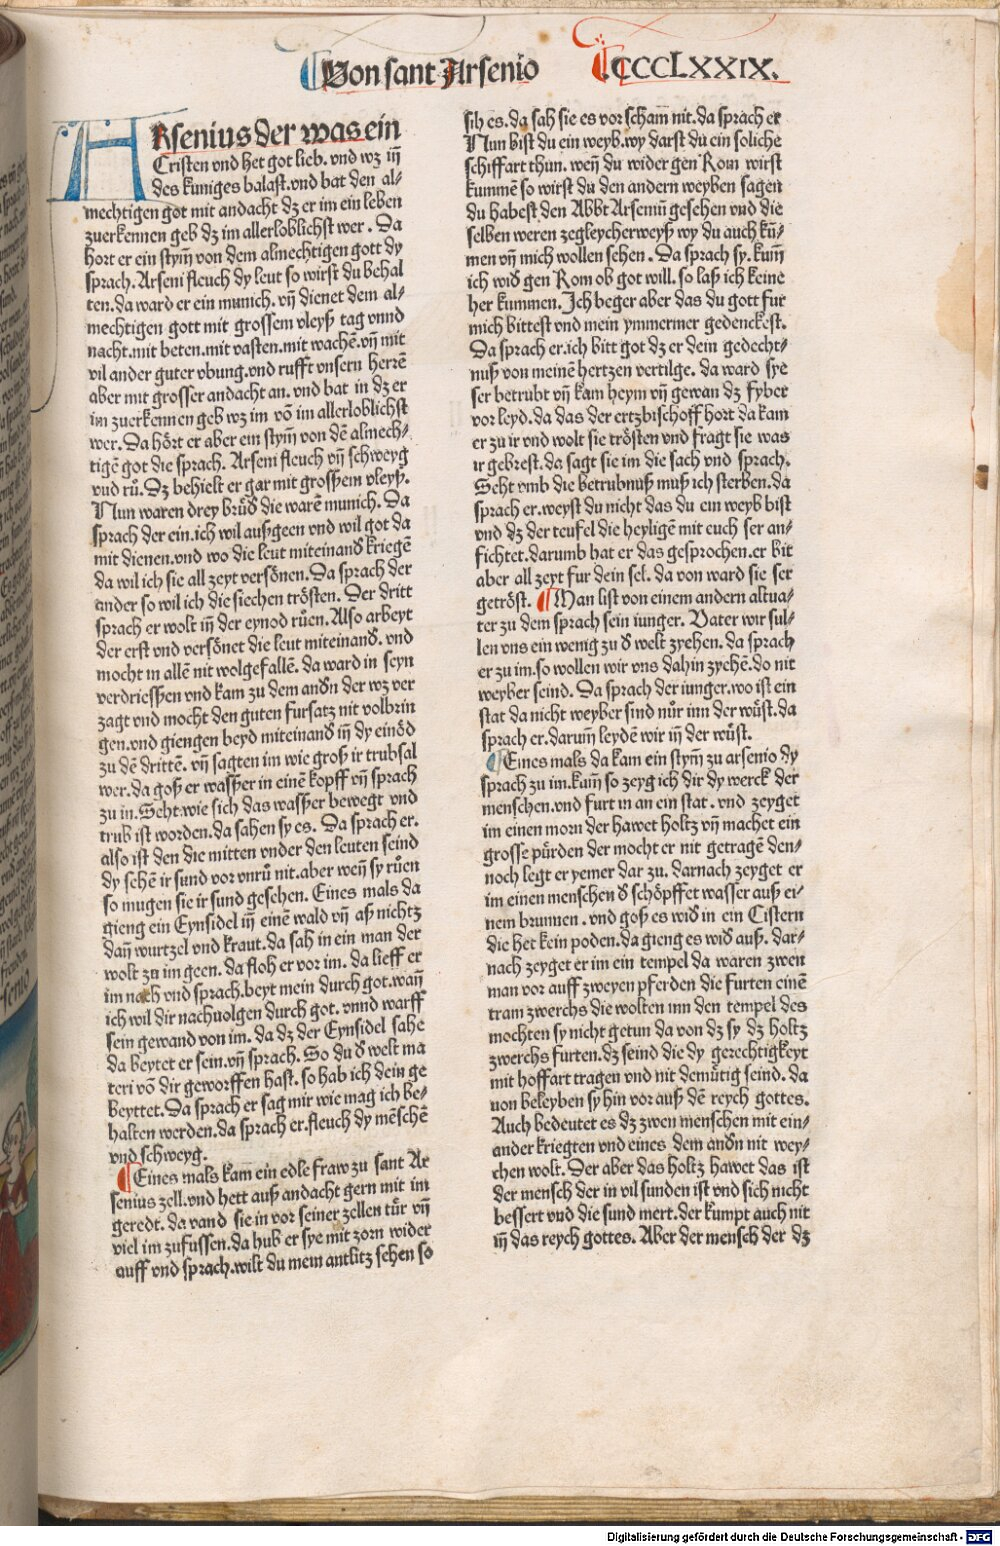 Von sant Arsenio .CCCCLXXIX.
ARsenius der was ein
Cristen vnd het got lieb. vnd wz iñ
des kuniges balast. vnd bat den al⸗
mechtigen got mit andacht dz er im ein leben
zuerkennen geb dz im allerloblichst wer. Da
hort er ein stym̄ von dem almechtigen gott dy
sprach. Arseni fleuch dy leut so wirst du behal
ten. da ward er ein munich. vñ dienet dem al⸗
mechtigen gott mit grossem vleyß tag vnnd
nacht. mit beten. mit vasten. mit wachē. vñ mit
vil ander guter vbung. vnd rufft vnsern herrē
aber mit grosser andacht an. vnd bat in dz er
im zuerkennen geb wz im vō im allerloblichst
wer. Da hört er aber ein stym̄ von dē almech⸗
tigē got die sprach. Arseni fleuch vñ schweyg
vnd rů. Dz behielt er gar mit grossem vleyß.
Nun waren drey brůd̄ die warē munich. Da
sprach der ein. ich wil außgeen vnd wil got da
mit dienen. vnd wo die leut miteinand̄ kriegē
da wil ich sie all zeyt versönen. Da sprach der
ander so wil ich die siechen trösten. Der dritt
sprach er wolt iñ der eynod růen. Also arbeyt
der erst vnd versönet die leut miteinand̄. vnd
mocht in allē nit wolgefallē. da ward in seyn
verdriessen vnd kam zu dem andn̄ der wz ver
zagt vnd mocht den guten fursatz nit volbrin
gen. vnd giengen beyd miteinand̄ iñ dy einöd
zu dē drittē. vñ sagten im wie groß ir trubsal
wer. da goß er wasser in einē kopff vñ sprach
zu in. Seht wie sich das wasser bewegt vnd
trub ist worden. da sahen sy es. Da sprach er.
also ist den die mitten vnder den leuten seind
dy sehē ir sund vor vnrů nit. aber weñ sy růen
so mugen sie ir sund gesehen. Eines mals da
gieng ein Eynsidel iñ einē wald vñ aß nichtz
dañ wurtzel vnd kraut. da sah in ein man der
wolt zu im geen. da floh er vor im. da lieff er
im nach vnd sprach. beyt mein durch got. wañ
ich wil dir nachuolgen durch got. vnnd warff
sein gewand von im. da dz der Eynsidel sahe
da beytet er sein. vñ sprach. So du d̄ welt ma
teri vō dir geworffen hast. so hab ich dein ge
beyttet. Da sprach er sag mir wie mag ich be⸗
halten werden. da sprach er. fleuch dy mēschē
vnd schweyg.
Eines mals kam ein edle fraw zu sant Ar
senius zell. vnd hett auß andacht gern mit im
geredt. da vand sie in vor seiner zellen tür vñ
viel im zufussen. da hub er sye mit zorn wider
auff vnd sprach. wilt du mein antlitz sehen so
sih es. da sah sie es vor scham̄ nit. da sprach er
Nun bist du ein weyb. wy darst du ein soliche
schiffart thun. weñ du wider gen Rom wirst
kummē so wirst du den andern weyben sagen
du habest den Abbt Arsenium̄ gesehen vnd die
selben weren zegleycherweyß wy du auch kū⸗
men vñ mich wollen sehen. Da sprach sy. kum̄
ich wid̄ gen Rom ob got will. so laß ich keine
her kummen. Ich beger aber das du gott fur
mich bittest vnd mein ymmermer gedenckest.
Da sprach er. ich bitt got dz er dein gedecht⸗
nuß von meinē hertzen vertilge. da ward sye
ser betrubt vñ kam heym vñ gewan dz fyber
vor leyd. da das der ertzbischoff hort da kam
er zu ir vnd wolt sie trösten vnd fragt sie was
ir gebrest. da sagt sie im die sach vnd sprach.
Seht vmb die betrubnuß muß ich sterben. da
sprach er. weyst du nicht das du ein weyb bist
vnd dz der teufel die heyligē mit euch ser an⸗
fichtet. darumb hat er das gesprochen. er bit
aber all zeyt fur dein sel. da von ward sie ser
getröst. Man list von einem andern altua⸗
ter zu dem sprach sein iunger. Vater wir sul⸗
len vns ein wenig zu d̄ welt zyehen. da sprach
er zu im. so wollen wir vns dahin zyehē. do nit
weyber seind. Da sprach der iunger. wo ist ein
stat da nicht weyber sind nůr inn der wůst. da
sprach er. darum̄ leydē wir iñ der wůst.
Eines mals da kam ein stym̄ zu arsenio dy
sprach zu im. kum̄ so zeyg ich dir dy werck der
menschen. vnd furt in an ein stat. vnd zeyget
im einen morn der hawet holtz vñ machet ein
grosse pürden der mocht er nit getragē den⸗
noch legt er yemer dar zu. darnach zeyget er
im einen menschen d̄ schöpffet wasser auß ei⸗
nem brunnen. vnd goß es wid̄ in ein Cistern
die het kein poden. da gieng es wid̄ auß. dar⸗
nach zeyget er im ein tempel da waren zwen
man vor auff zweyen pferden die furten einē
tram zwerchs die wolten inn den tempel des
mochten sy nicht getun da von dz sy dz holtz
zwerchs furten. dz seind die dy gerechtigkeyt
mit hoffart tragen vnd nit demůtig seind. da
uon beleyben sy hin vor auß dē reych gottes.
Auch bedeutet es dz zwen menschen mit ein⸗
ander kriegten vnd eines dem andn̄ nit wey⸗
chen wolt. Der aber das holtz hawet das ist
der mensch der in vil sunden ist vnd sich nicht
bessert vnd die sund mert. der kumpt auch nit
iñ das reych gottes. Aber der mensch der dz
Digitalisierung gefördert durch die Deutsche Forschungsgemeinschaft - DFG